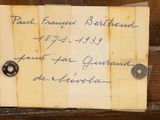 Paul François Bertrand
1871-1939
peint par Guirand
de Scévola